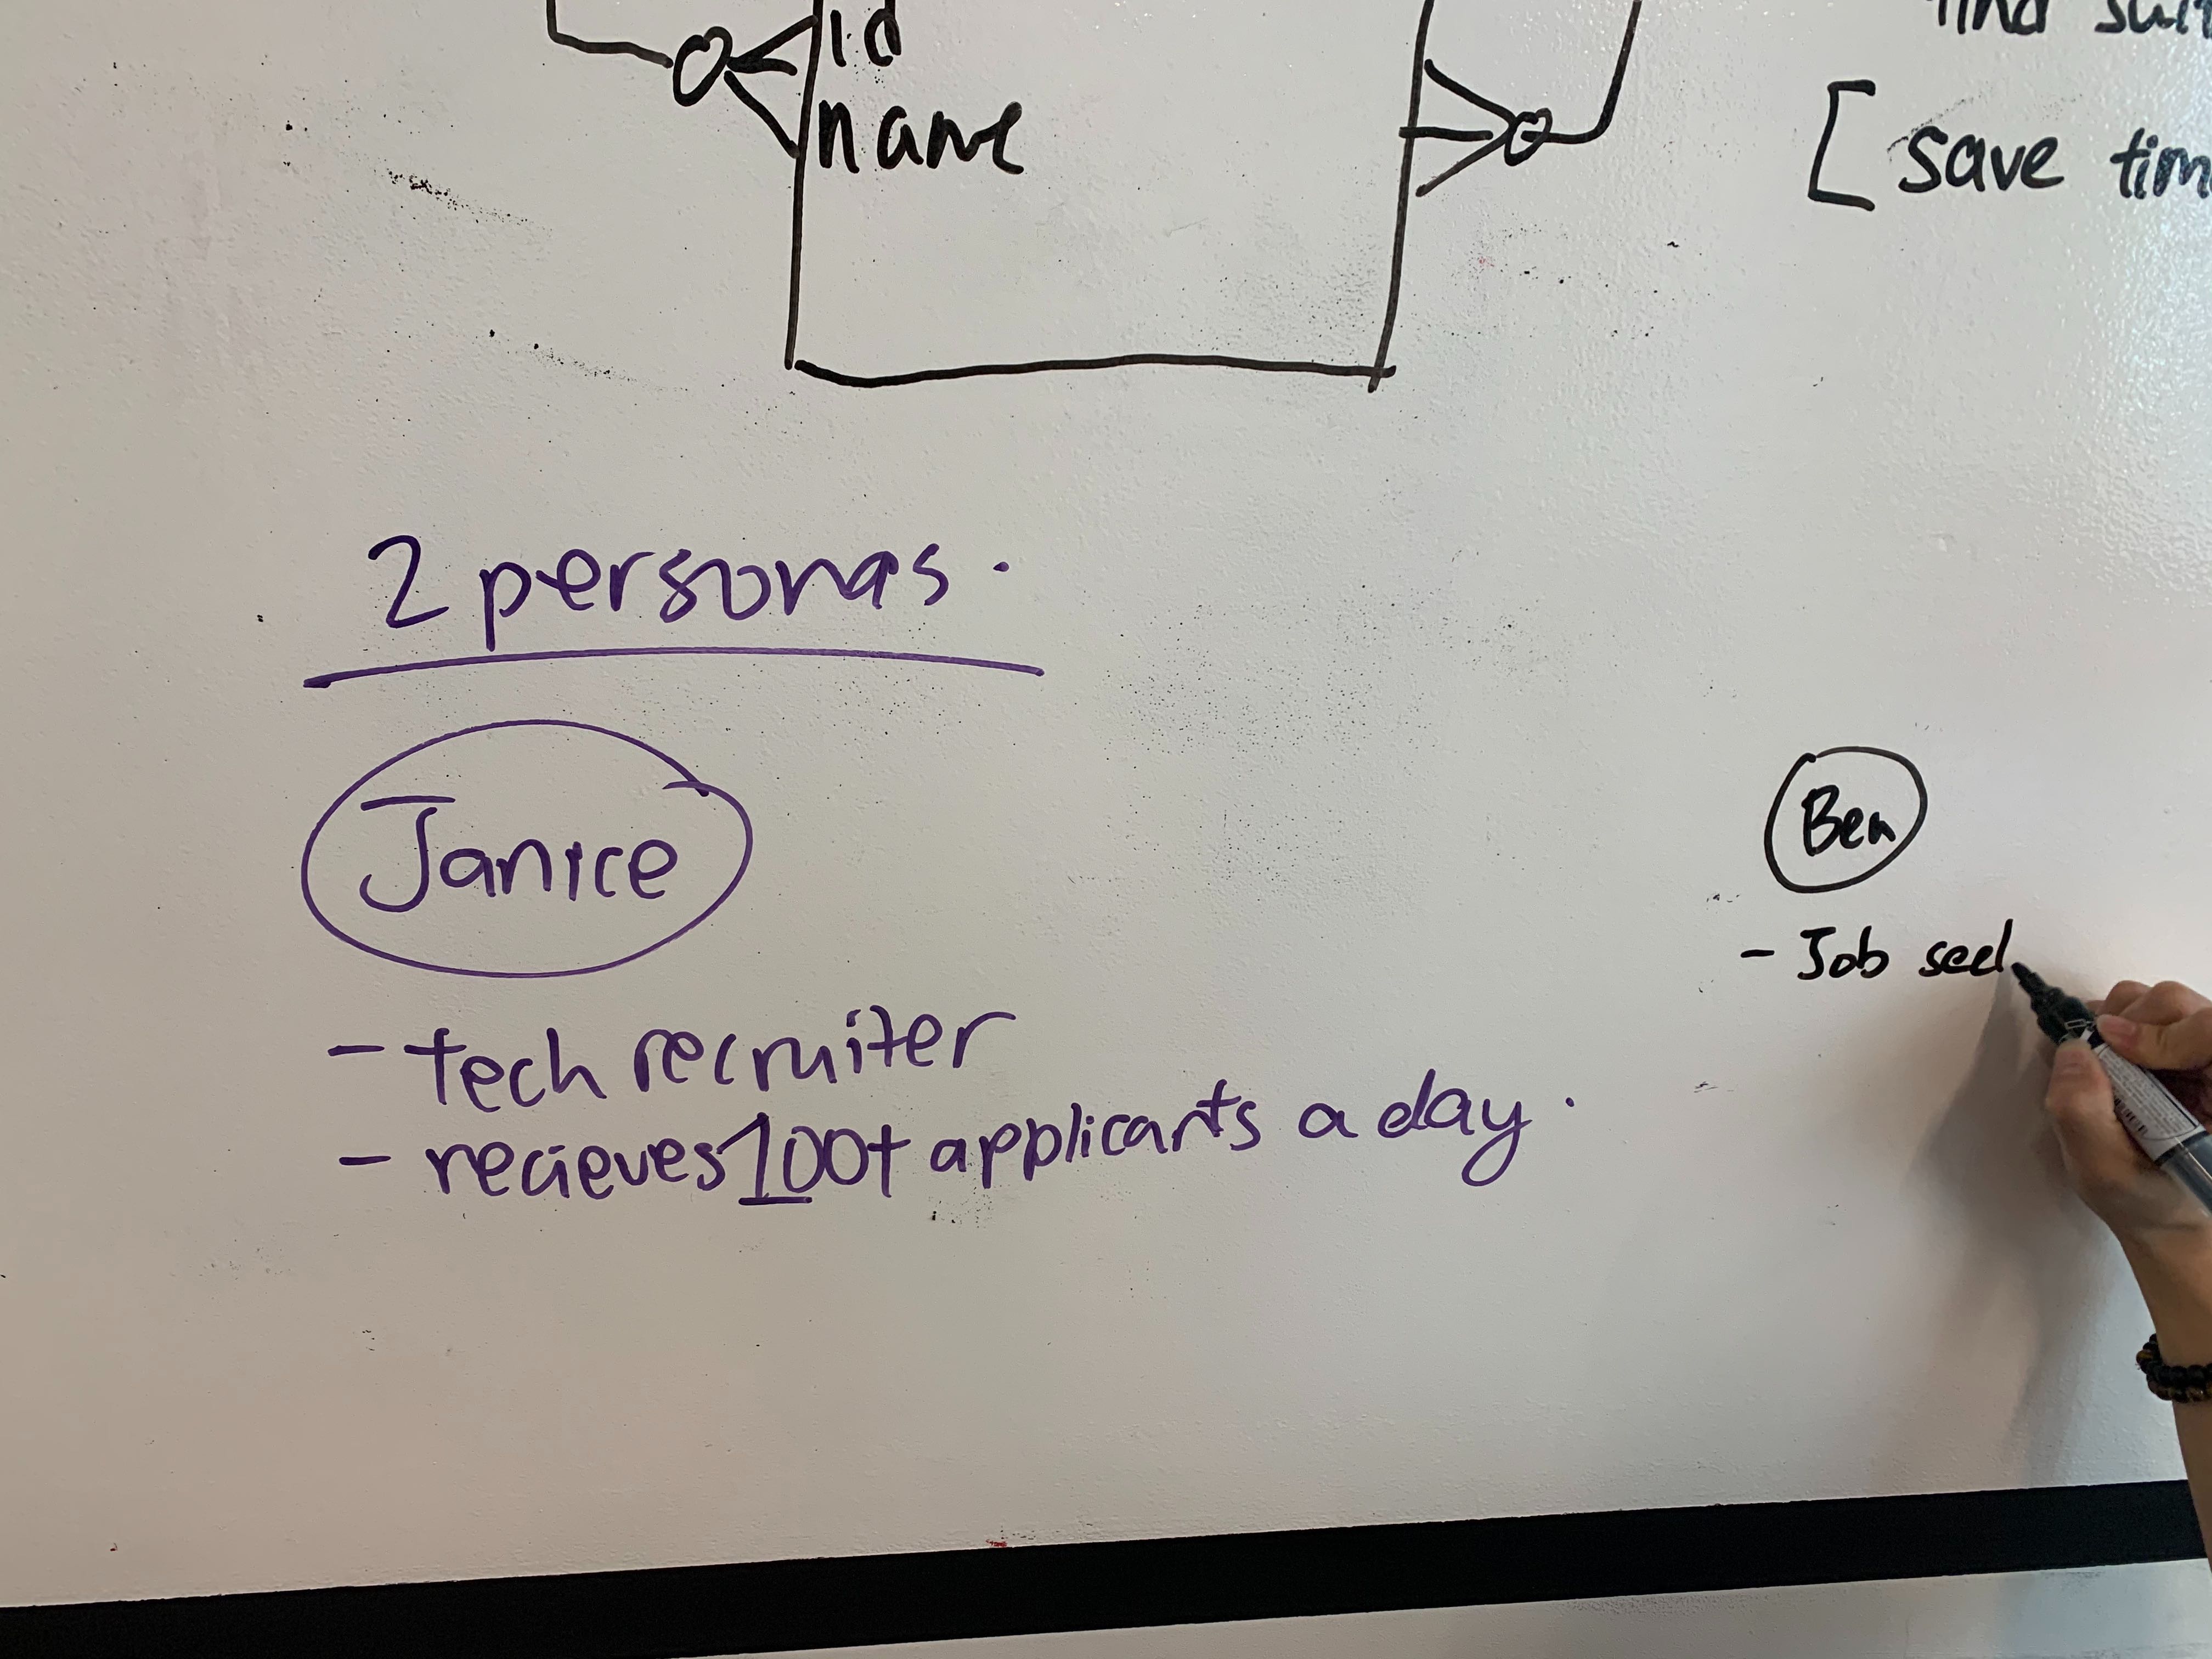 id
name
find
[ save
2 personas.
Janice
- tech recruiter
- recieves 100+ applicants a day.
Ben
- Job